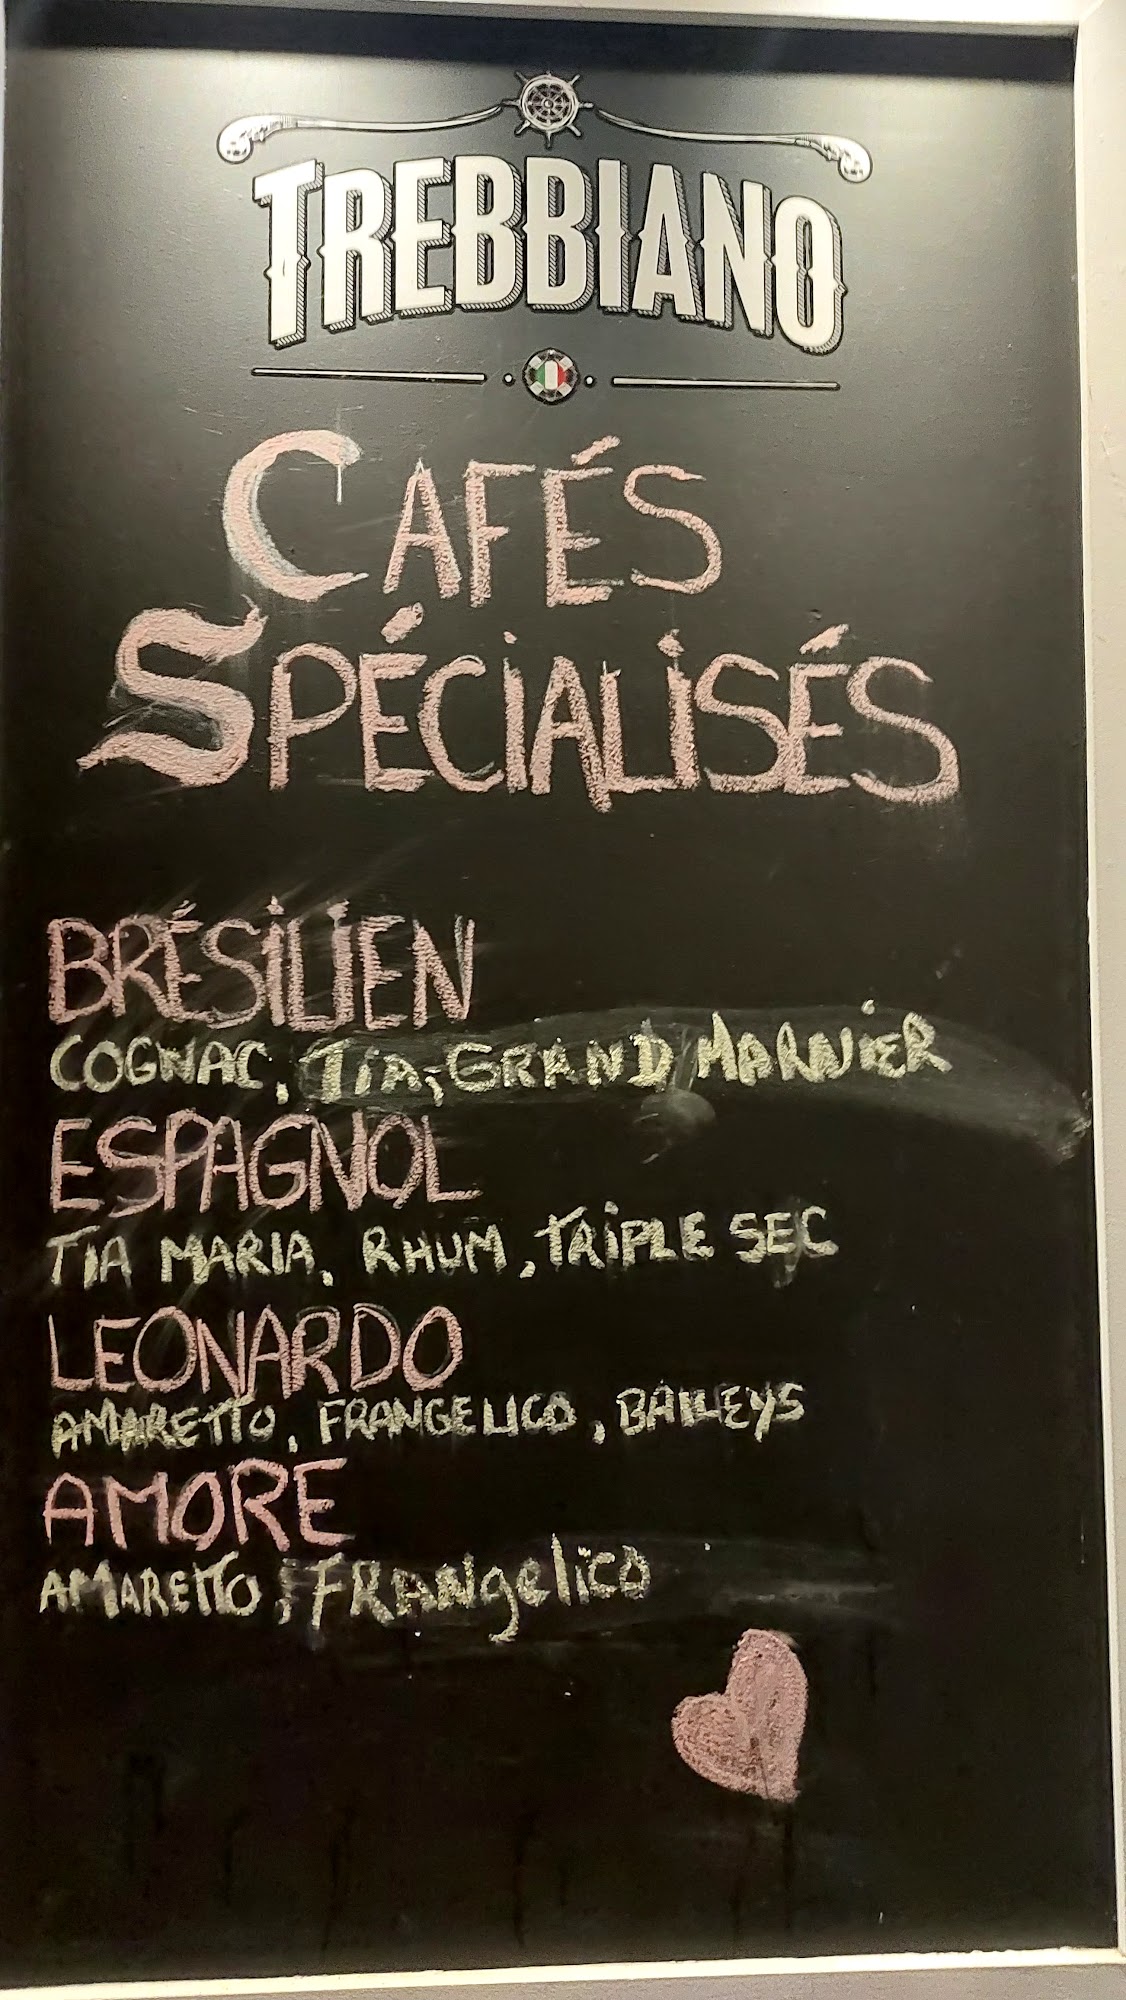 TREBBIANO
CAFÉS
SPÉCIALISÉS
BRÉSILIEN
COGNAC, TIA, GRAND MARNIER
ESPAGNOL
TIA MARIA, RHUM, TRIPLE SEC
LEONARDO
AMARETTO, FRANGELICO, BAILEYS
AMORE
AMARETTO, FRANgelico